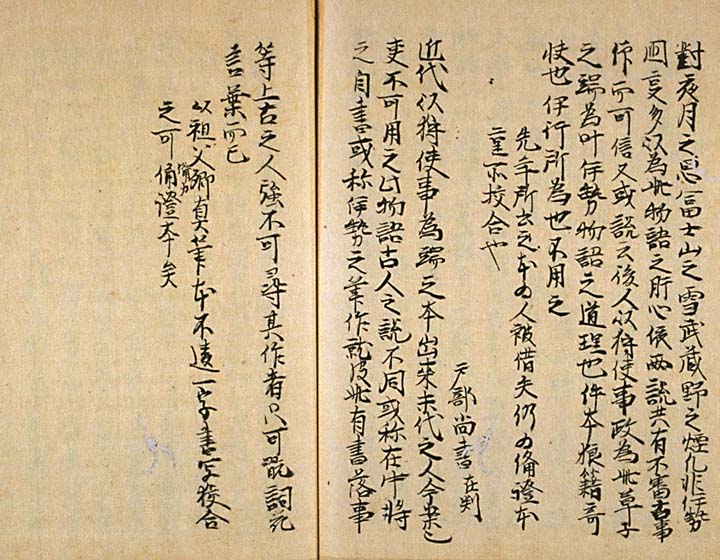 對夜月之思富士山之雪武蔵野之煙
更多以為此物語之肝心侯両説共有不審古事
作而可信又或説云後人以狩使事改為此草子
之端為叶伊勢物語之道理也件本狼籍奇
恠也伊行所為也不用之
先年所書之本為人被借失仍為備證本
重所校合也
戸部尚書在判
近代以狩使事為端之本出来末代之人今案也
更不可用之此物語古人之説不同或称在中将
之自書或称伊勢之筆作就彼此有書落事
等上古之人強不可尋其作者只可翫詞花
言葉而已
以祖父卿真筆本不違一字書写挍合
之可備證本矣